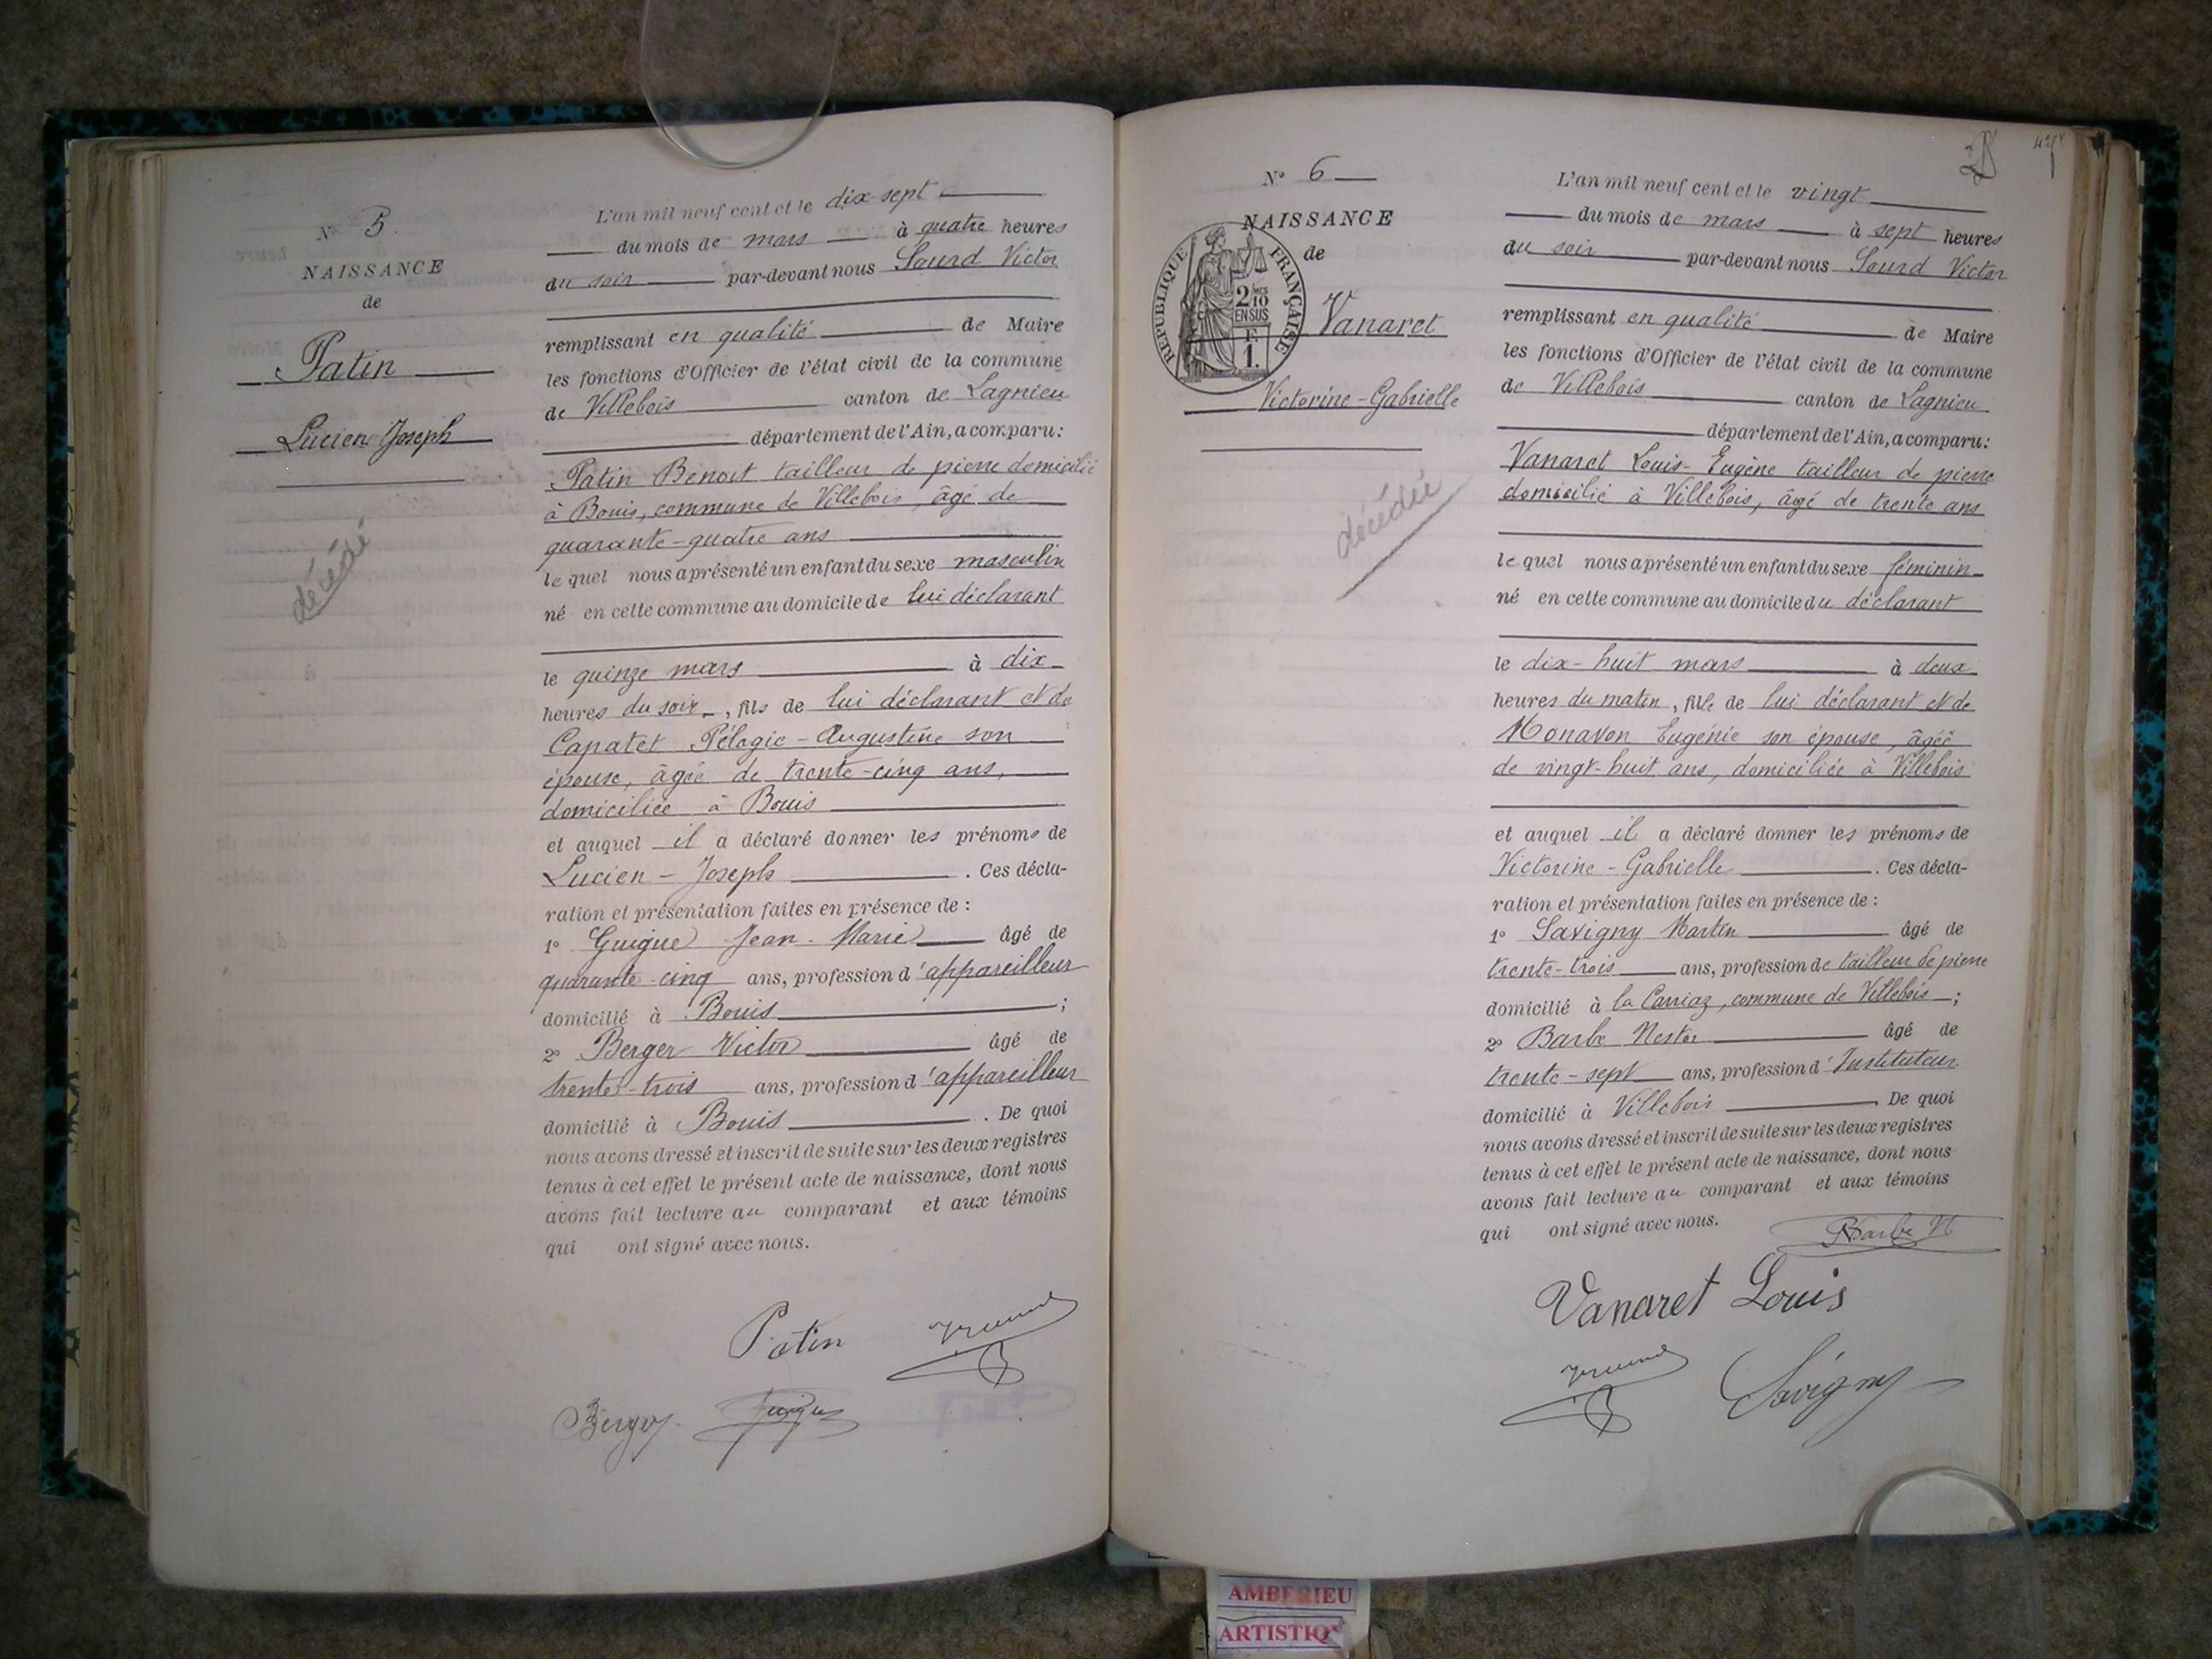 N° 5.
NAISSANCE
de
Patin
Lucien-Joseph
décédé
L'an mil neuf cent et le dix-sept
du mois de mars à quatre heures
du soir par-devant nous Sourd Victor
remplissant en qualité de Maire
les fonctions d'Officier de l'état civil de la commune
de Villebois canton de Lagnieu
département de l'Ain, a comparu:
Patin Benoit tailleur de pierre domicilié
à Bouis, commune de Villebois, âgé de
quarante-quatre ans
le quel nous a présenté un enfant du sexe masculin
né en cette commune au domicile de lui déclarant
le quinze mars à dix
heures du soir, fils de lui déclarant et de
Capatet Pélagie-Augustine son
épouse, âgée de trente-cinq ans,
domiciliée à Bouis
et auquel il a déclaré donner les prénoms de
Lucien-Joseph. Ces décla-
ration et présentation faites en présence de :
1° Guigue Jean-Marie âgé de
quarante-cinq ans, profession d'appareilleur
domicilié à Bouis ;
2° Berger Victor âgé de
trente-trois ans, profession d'appareilleur
domicilié à Bouis. De quoi
nous avons dressé et inscrit de suite sur les deux registres
tenus à cet effet le présent acte de naissance, dont nous
avons fait lecture au comparant et aux témoins
qui ont signé avec nous.
Patin
Berger Guigue
N° 6
NAISSANCE
de
RÉPUBLIQUE FRANÇAISE
2/10 MES
EN SUS
F.
1.
Vanaret
Victorine-Gabrielle
décédée
L'an mil neuf cent et le vingt
du mois de mars à sept heures
du soir par-devant nous Sourd Victor
remplissant en qualité de Maire
les fonctions d'Officier de l'état civil de la commune
de Villebois canton de Lagnieu
département de l'Ain, a comparu:
Vanaret Louis-Eugène tailleur de pierre
domicilié à Villebois, âgé de trente ans
le quel nous a présenté un enfant du sexe féminin
né en cette commune au domicile du déclarant
le dix-huit mars à deux
heures du matin, fille de lui déclarant et de
Monavon Eugénie son épouse, âgée
de vingt-huit ans, domiciliée à Villebois
et auquel il a déclaré donner les prénoms de
Victorine-Gabrielle. Ces décla-
ration et présentation faites en présence de :
1° Savigny Martin âgé de
trente-trois ans, profession de tailleur de pierre
domicilié à la Carriaz, commune de Villebois ;
2° Barbe Nestor âgé de
trente-sept ans, profession d'Instituteur
domicilié à Villebois De quoi
nous avons dressé et inscrit de suite sur les deux registres
tenus à cet effet le présent acte de naissance, dont nous
avons fait lecture au comparant et aux témoins
qui ont signé avec nous.
Barbe N
Vanaret Louis
Savigny
AMBERIEU
ARTISTIQ